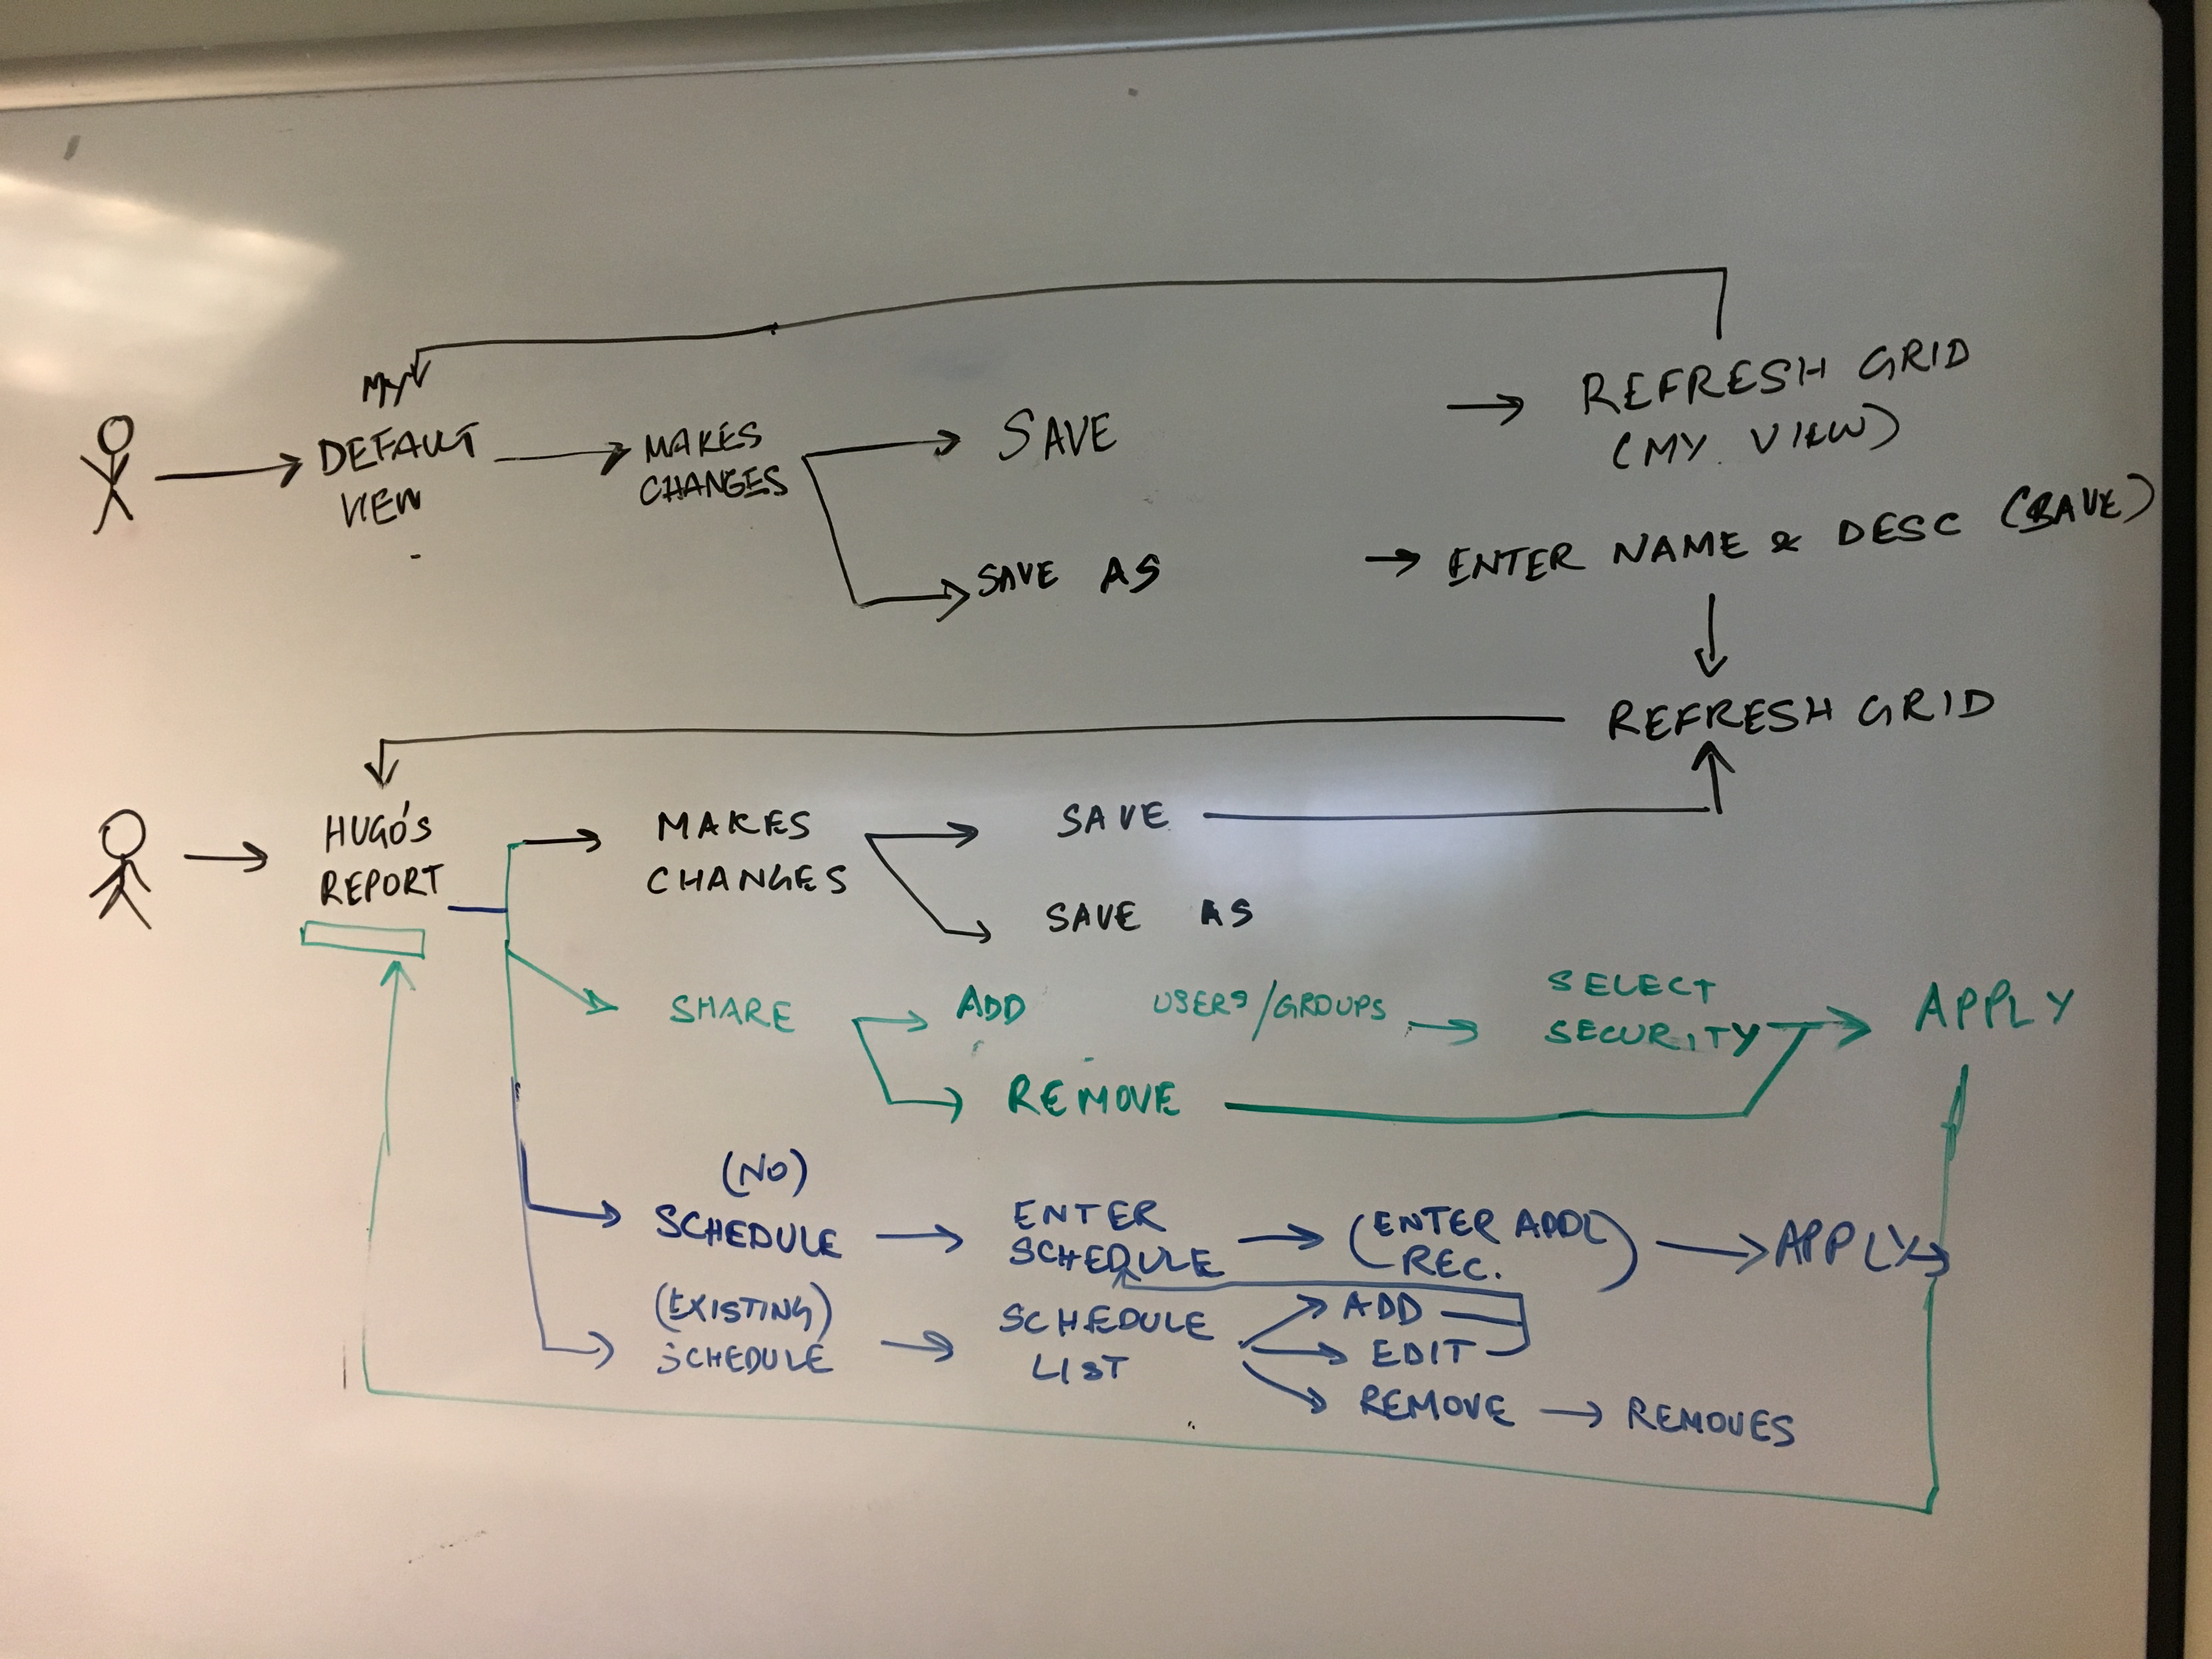 MY
DEFAULT
VIEW
MAKES
CHANGES
SAVE
REFRESH GRID
(MY VIEW)
SAVE AS
ENTER NAME & DESC (SAVE)
REFRESH GRID
HUGO'S
REPORT
MAKES
CHANGES
SAVE
SAVE AS
SHARE
ADD USERS/GROUPS
SELECT
SECURITY
APPLY
REMOVE
(NO)
SCHEDULE
ENTER
SCHEDULE
(ENTER ADDL
REC.)
APPLY
(EXISTING)
SCHEDULE
SCHEDULE
LIST
ADD
EDIT
REMOVE
REMOVES